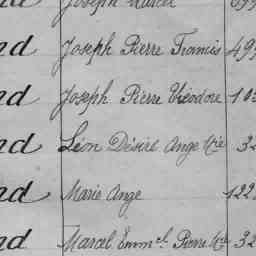 Joseph Marcel
nd Joseph Pierre Francis 49
nd Joseph Pierre Théodore 10
nd Léon Désiré Ange Mie 32
nd Marie Ange 122
nd Marcel Emm.el Pierre Mie 32